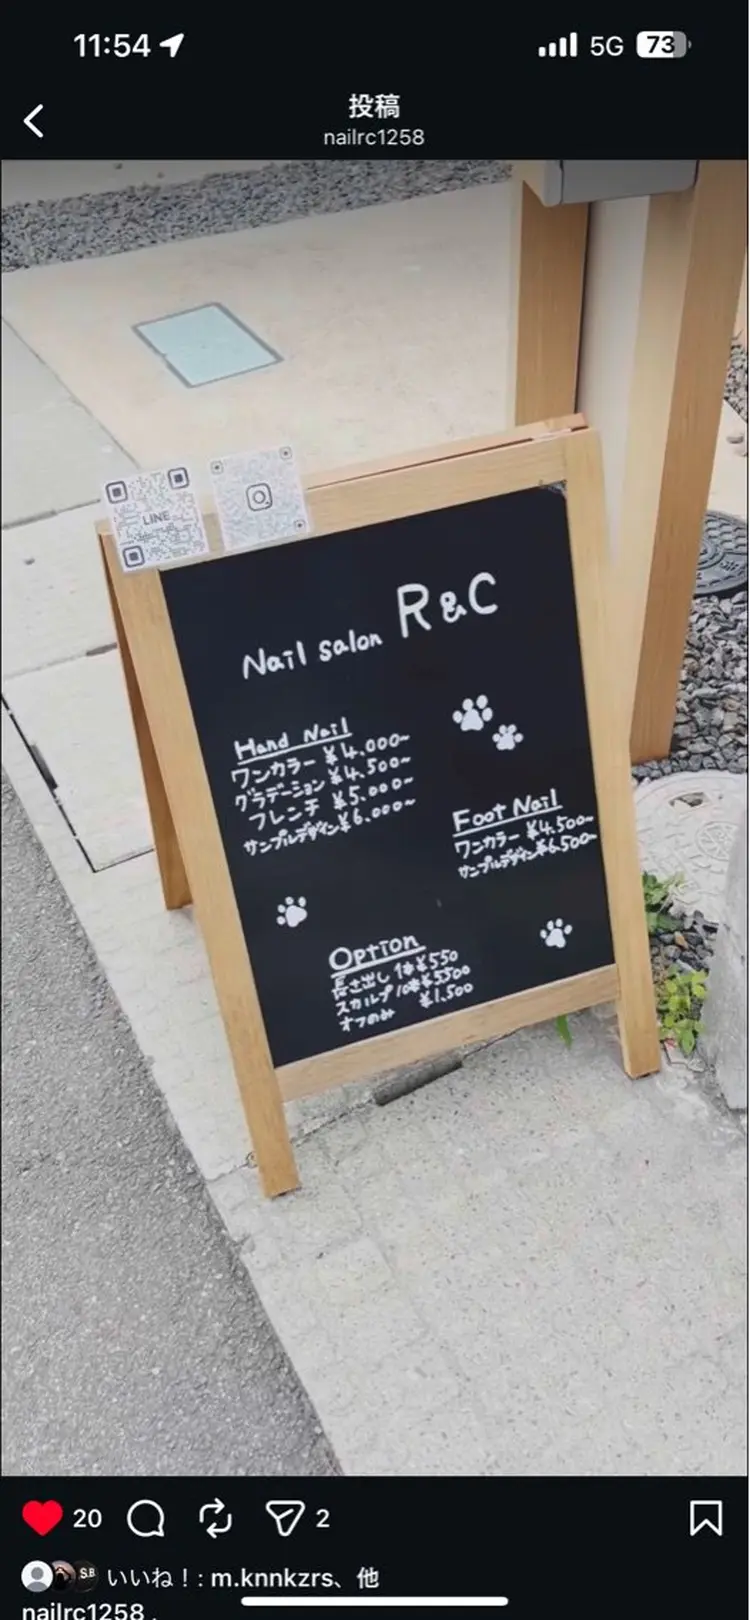 11:54
5G
73
投稿
nailrc1258
LINE
Nail salon R&C
Hand Nail
ワンカラー ¥4.000~
グラデーション ¥4.500~
フレンチ ¥5.000~
サンプルデザイン¥6.000~
Foot Nail
ワンカラー ¥4.500~
サンプルデザイン¥6.500~
Option
長さ出し 1本¥550
スカルプ 10本¥5500
オフのみ ¥1.500
20
2
S.B
いいね！: m.knnkzrs、他
nailrc1258 .